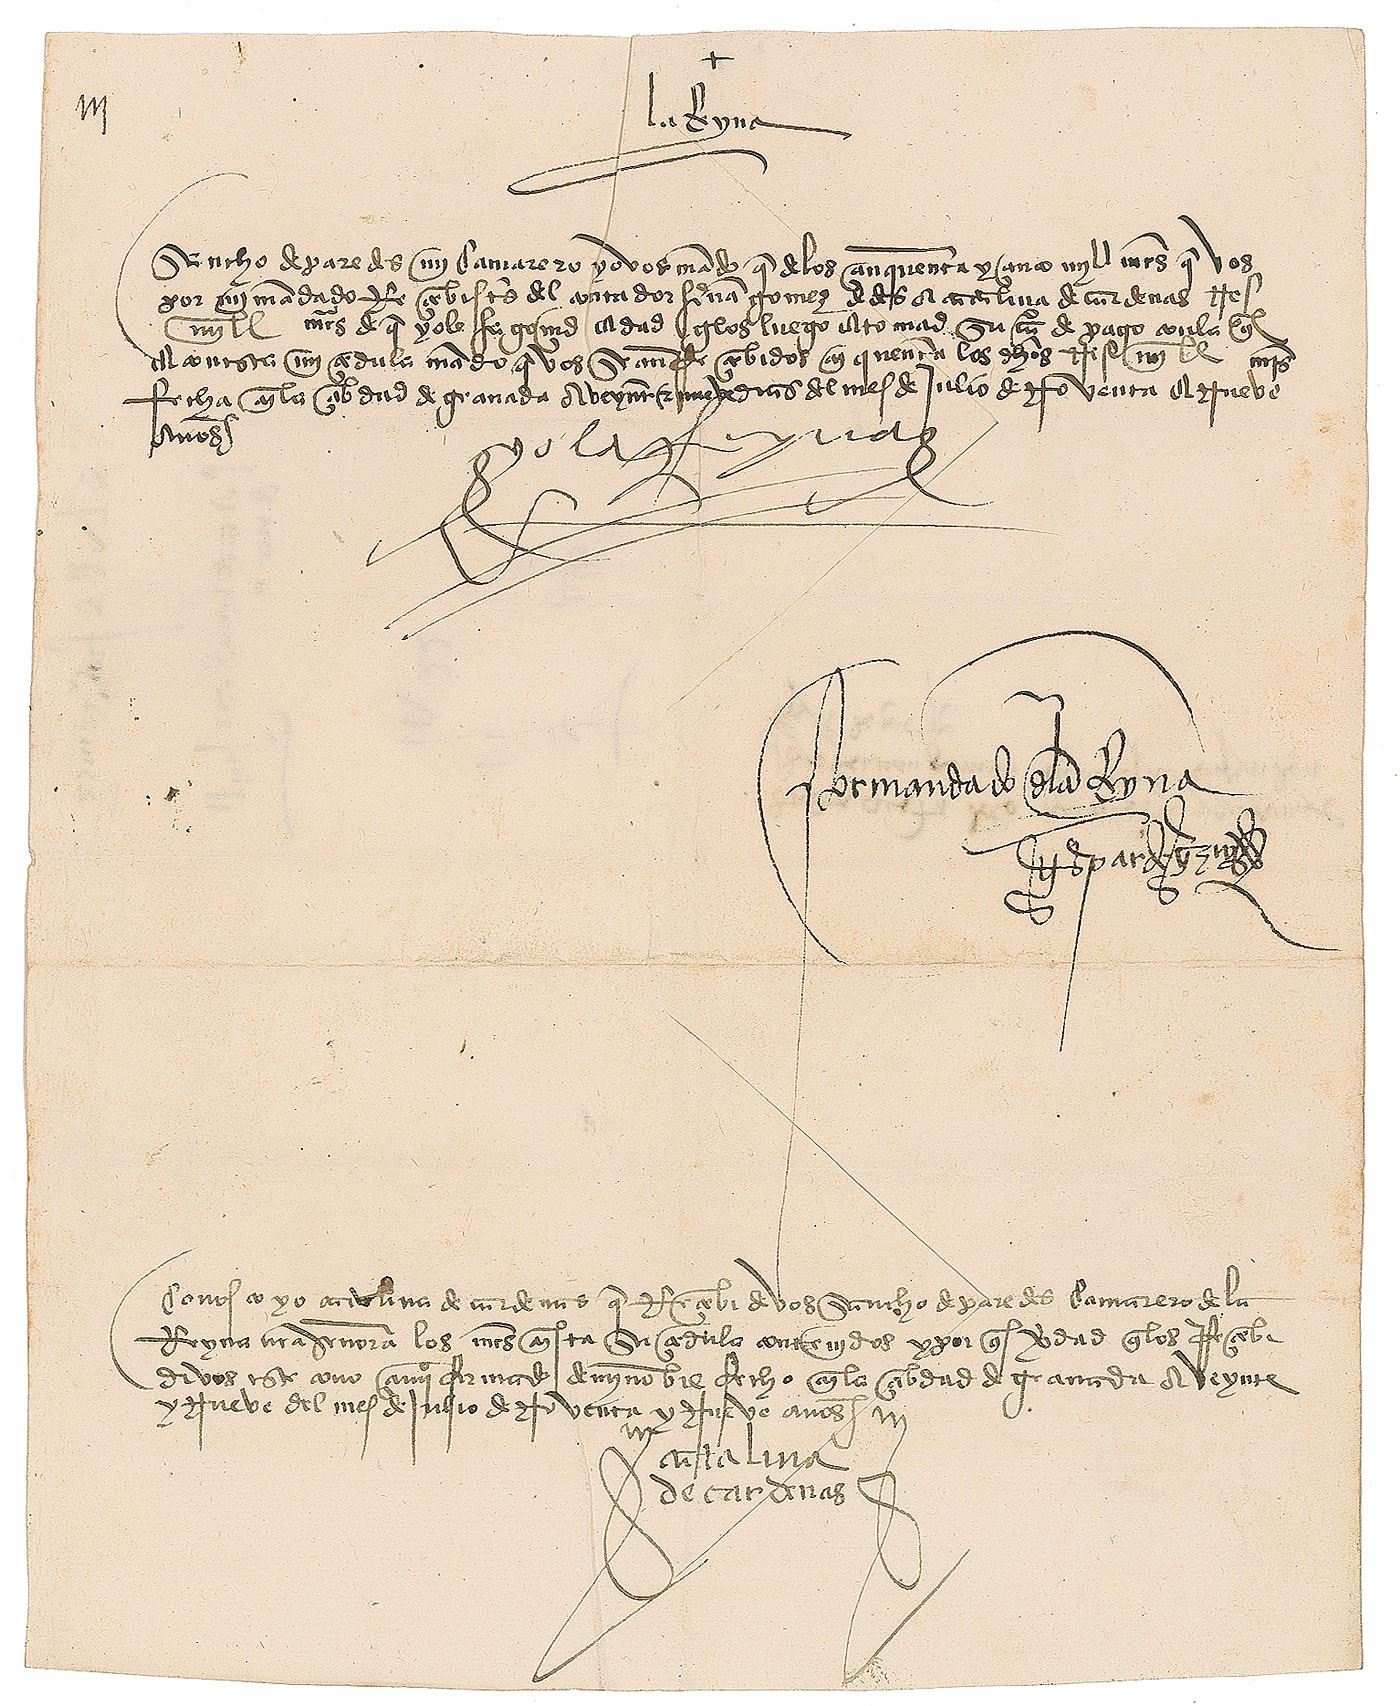 +
la Reyna
Sancho de paredes mi Camarero yo vos mado q de los çinquenta y çinco mill mrs q vos
por mi mandado Reçebistes del contador de des a catalina de cardenas tres
mill mrs de que yo le fago md e dad gelos luego e tomad su de pago con la ql
e con esta mi çedula mado q vos sean Reçebidos en quenta los dhos tres mill mrs
fecha en la çibdad de granada a veynte e nueve dias del mes de Julio de noventa e nueve
años
yo la Reyna
por mandado de la Reyna
gaspar de
Conosco yo catalina de cardenas q Reçebi de vos Sancho de paredes Camarero de la
Reyna nra señora los mrs en esta su çedula contenidos y por ques verdad que los Reçebi
di vos este firmado de mi nobre fecho en la çibdad de granada a veynte
y nueve del mes de Julio de noventa y nueve años iij
catalina
de cardenas